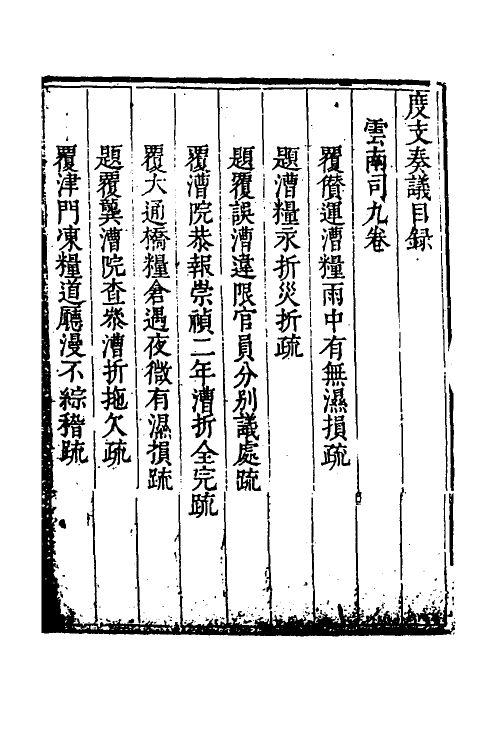 度支奏議目録
雲南司九卷
覆儹運漕糧雨中有無濕損疏
題漕糧永折災折疏
題覆誤漕違限官員分別議處疏
覆漕院恭報崇禎二年漕折全完疏
覆大通橋糧倉遇夜微有濕損疏
題覆冀漕院查叅漕折拖欠疏
覆津門凍糧道廳漫不綜稽疏